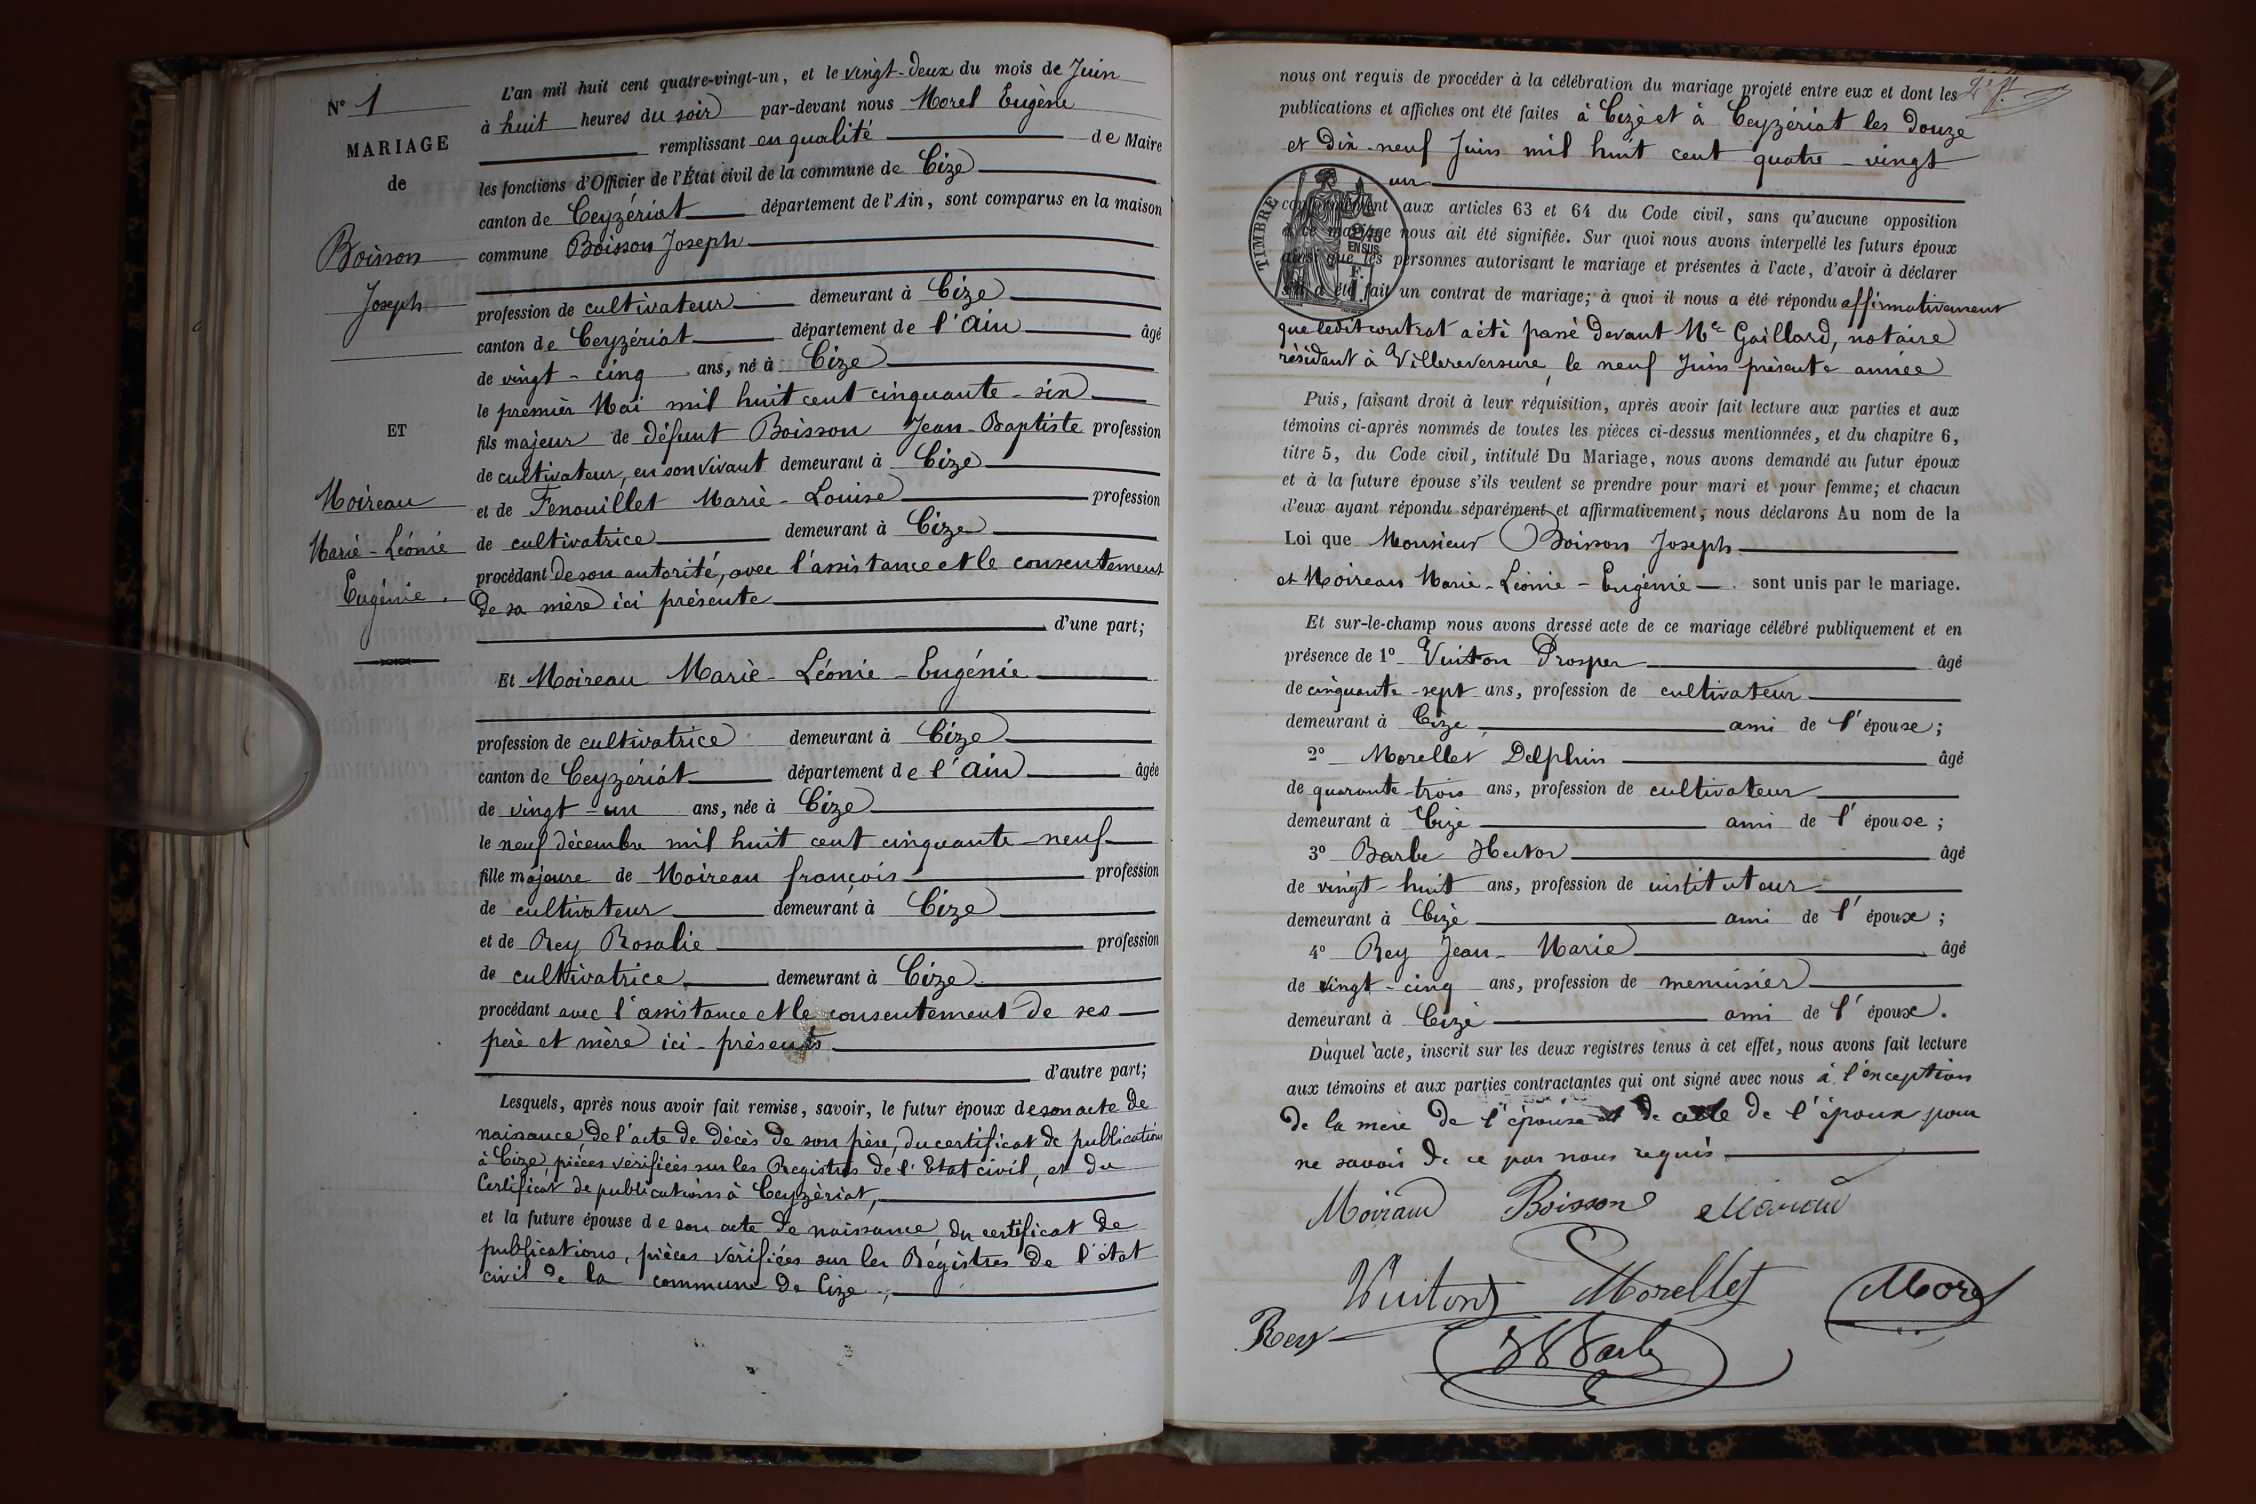 N° 1
MARIAGE
de
Boisson
Joseph
ET
Moireau
Marie-Léonie
Eugénie.
L'an mil huit cent quatre-vingt-un, et le vingt-deux du mois de Juin
à huit heures du soir par-devant nous Morel Eugène
remplissant en qualité de Maire
les fonctions d'Officier de l'État civil de la commune de Cize
canton de Ceyzériat département de l'Ain, sont comparus en la maison
commune Boisson Joseph
profession de cultivateur demeurant à Cize
canton de Ceyzériat département de l'Ain âgé
de vingt-cinq ans, né à Cize
le premier Mai mil huit cent cinquante-six
fils majeur de défunt Boisson Jean-Baptiste profession
de cultivateur, en son vivant demeurant à Cize
et de Fenouillet Marie-Louise profession
de cultivatrice demeurant à Cize
procédant de son autorité, avec l'assistance et le consentement
de sa mère ici présente
d'une part;
Et Moireau Marie-Léonie-Eugénie
profession de cultivatrice demeurant à Cize
canton de Ceyzériat département de l'Ain âgée
de vingt-un ans, née à Cize
le neuf décembre mil huit cent cinquante-neuf
fille majeure de Moireau françois profession
de cultivateur demeurant à Cize
et de Rey Rosalie profession
de cultivatrice demeurant à Cize
procédant avec l'assistance et le consentement de ses
père et mère ici-présents
d'autre part;
Lesquels, après nous avoir fait remise, savoir, le futur époux de son acte de
naissance, de l'acte de décès de son père, du certificat de publications
à Cize, pièces vérifiées sur les Registres de l'Etat civil, et du
Certificat de publications à Ceyzériat,
et la future épouse de son acte de naissance, du certificat de
publications, pièces vérifiées sur les Régistres de l'état
civil de la commune de Cize,
nous ont requis de procéder à la célébration du mariage projeté entre eux et dont les
publications et affiches ont été faites à Cize et à Ceyzériat les douze
et dix-neuf Juin mil huit cent quatre-vingt
un
conformément aux articles 63 et 64 du Code civil, sans qu'aucune opposition
à ce mariage nous ait été signifiée. Sur quoi nous avons interpellé les futurs époux
ainsi que les personnes autorisant le mariage et présentes à l'acte, d'avoir à déclarer
s'il a été fait un contrat de mariage; à quoi il nous a été répondu affirmativement
que ledit contrat a été passé devant Me Gaillard, notaire
résidant à Villereversure, le neuf Juin présente année
TIMBRE
2/10
EN SUS
F.
Puis, faisant droit à leur réquisition, après avoir fait lecture aux parties et aux
témoins ci-après nommés de toutes les pièces ci-dessus mentionnées, et du chapitre 6,
titre 5, du Code civil, intitulé Du Mariage, nous avons demandé au futur époux
et à la future épouse s'ils veulent se prendre pour mari et pour femme; et chacun
d'eux ayant répondu séparément et affirmativement, nous déclarons Au nom de la
Loi que Monsieur Boisson Joseph
et Moireau Marie-Léonie-Eugénie sont unis par le mariage.
Et sur-le-champ nous avons dressé acte de ce mariage célébré publiquement et en
présence de 1° Vuiton Prosper âgé
de cinquante-sept ans, profession de cultivateur
demeurant à Cize ami de l'épouse;
2° Morellet Delphin âgé
de quarante-trois ans, profession de cultivateur
demeurant à Cize ami de l'épouse;
3° Barbe Hector âgé
de vingt-huit ans, profession de instituteur
demeurant à Cize ami de l'époux;
4° Rey Jean-Marie âgé
de vingt-cinq ans, profession de menuisier
demeurant à Cize ami de l'époux.
Duquel acte, inscrit sur les deux registres tenus à cet effet, nous avons fait lecture
aux témoins et aux parties contractantes qui ont signé avec nous à l'exception
de la mère de l'épouse et de celle de l'époux pour
ne savoir de ce par nous requis
Moiraud Boisson
Vuiton Morellet Morel
Rey H Barbe